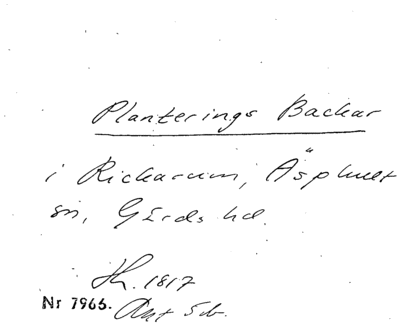 Planterings Backar
i Rickarum, Äsphult
sn, Gärds hd.
Th. 1817
Nr 7965. Ant Sb.